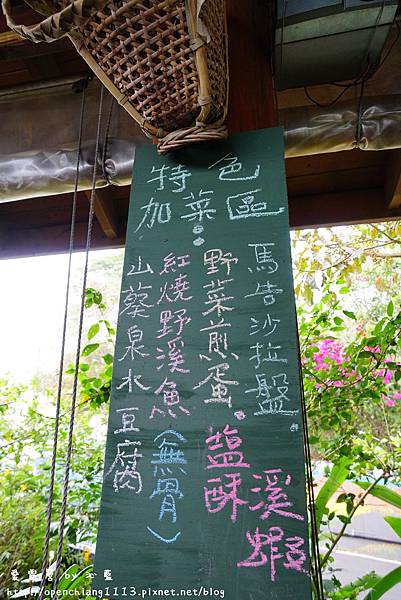 特色
加菜區:
馬告沙拉盤.
野菜煎蛋.
鹽酥溪蝦
紅燒野溪魚(無骨)
山葵泉水豆腐
http://openchiang1113.pixnet.net/blog